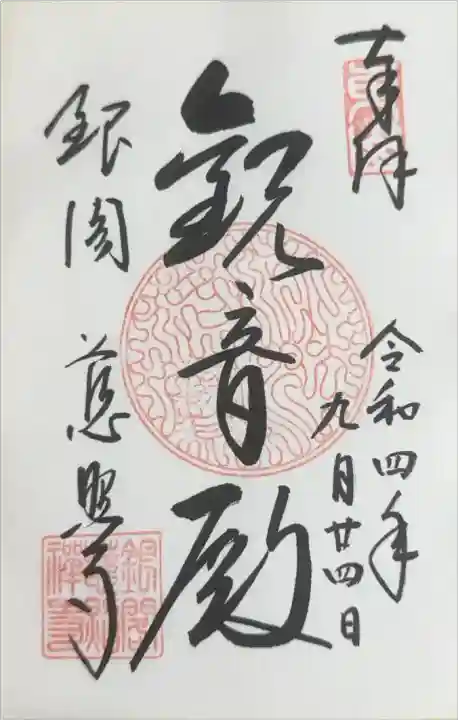 奉拝
令和四年
九月廿四日
觀音殿
銀閣 慈照寺
銀閣
慈照
禅寺